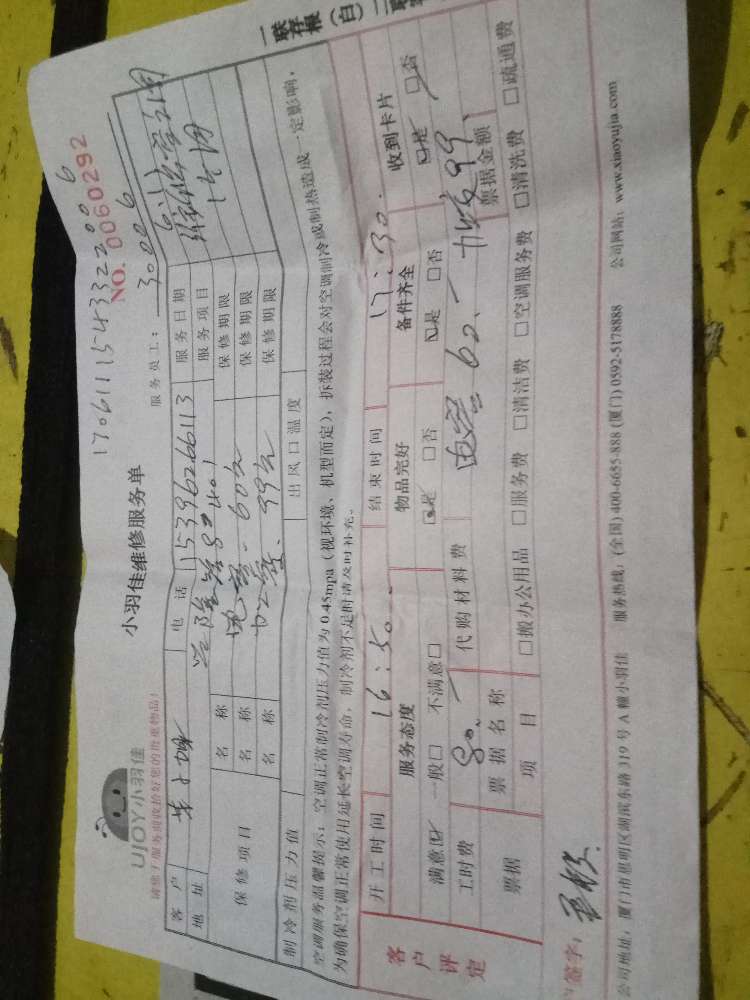 一联存根(白)二联
170611154332006
NO. 0060292
UJOY小羽佳
小羽佳维修服务单
服务员工: 30006
客户 电话 15396266113 服务日期 6.11
地址 服务项目
保修项目 名称 保修期限
名称 60元 保修期限
名称 99元 保修期限
制冷剂压力值 出风口温度
空调服务温馨提示:空调正常制冷剂压力值为0.45mpa(视环境、机型而定),拆装过程会对空调制冷或制热造成一定影响,
为确保空调正常使用延长空调寿命,制冷剂不足时请及时补充。
客户评定
开工时间 16:50. 结束时间 17:30.
服务态度 物品完好 备件齐全 收到卡片
满意☑ 一般□ 不满意□ ☑是 □否 ☑是 □否 ☑是 □否
工时费 80. 代购材料费 60. 99、
票据 票据名称 票据金额
项目 □搬办公用品 □服务费 □清洁费 □空调服务费 □清洗费 □疏通费
户签字:
公司地址:厦门市思明区湖滨东路319号A幢小羽佳 服务热线:(全国)400-6655-888 (厦门)0592-5178888 公司网站:www.xiaoyujia.com